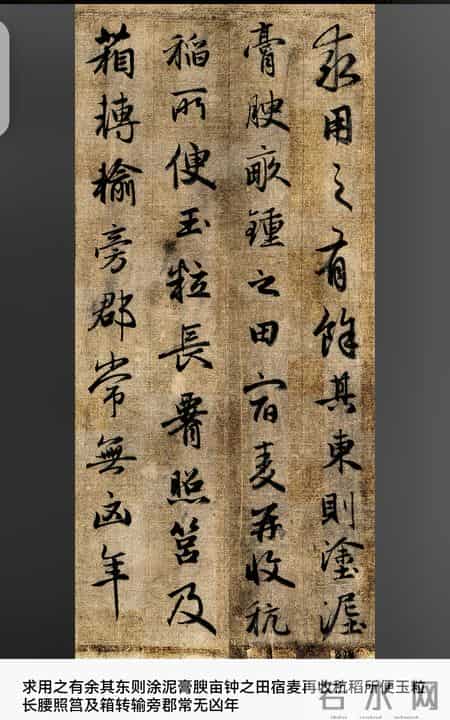 求用之有餘其東則塗埿
膏腴畝鍾之田宿麥再收秔
稻所便玉粒長䙅照筥及
箱轉輸旁郡常無凶年
求用之有余其东则涂泥膏腴亩钟之田宿麦再收秔稻所便玉粒
长腰照筥及箱转输旁郡常无凶年